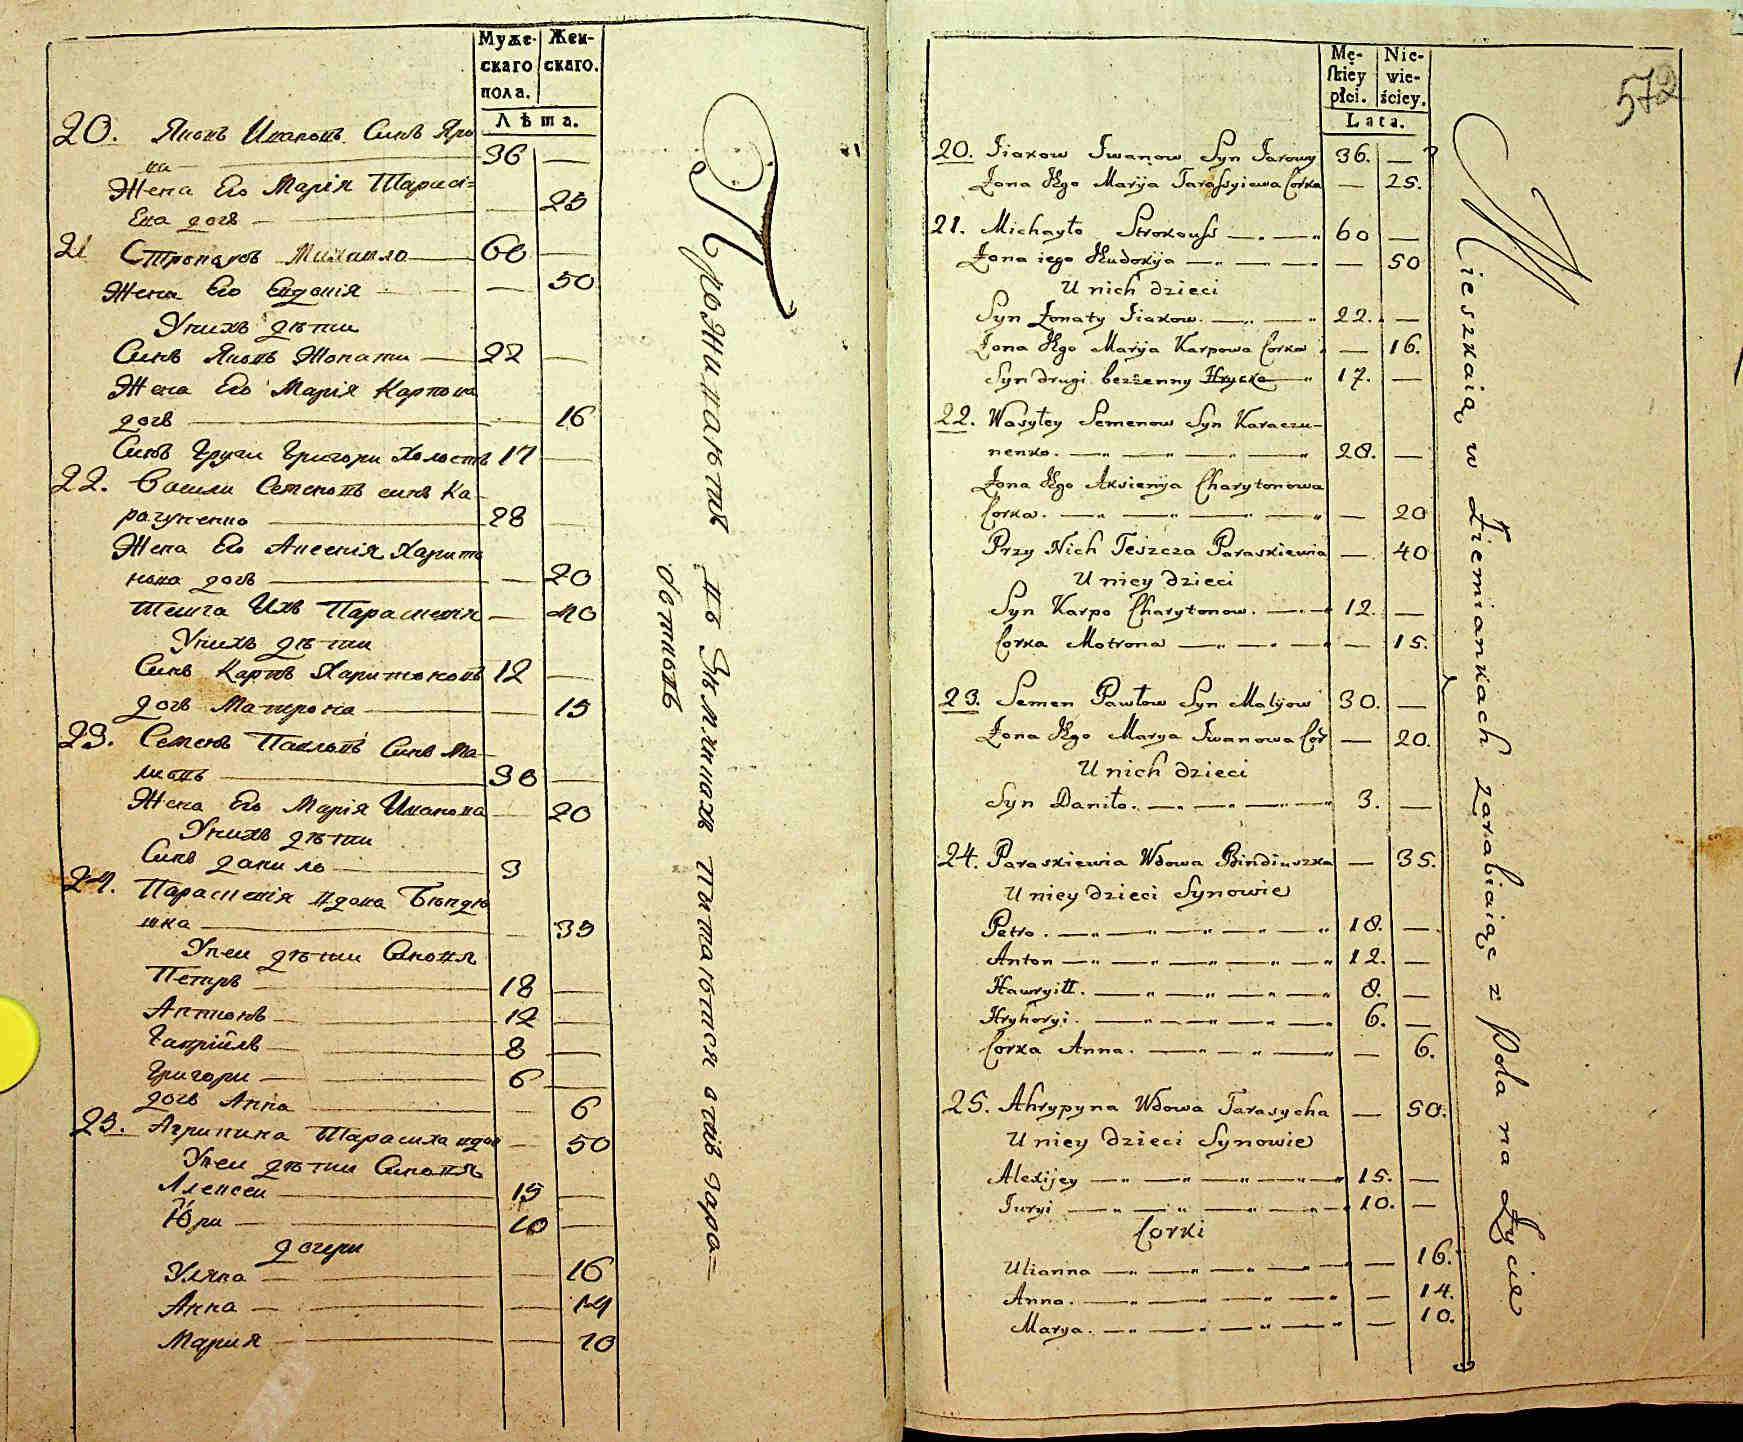 Муже- Жен-
скаго скаго.
пола.
Лѣта.
20. Яковъ Ивановъ Синъ Яро
ви 36 —
Жена Его Марія Тарасі=
Ева дочь — 25
21 Строкаузъ Михаило 60 —
Жена Его Евдокія — 50
Унихъ дѣти
Синъ Яковъ Жонати 22 —
Жена Его Марія Карпова
дочь — 16
Синъ Други Григори Холостъ 17 —
22. Васили Семеновъ синъ Ка-
рачуненко 28
Жена Его Аксенія Харито
нова дочь — 20
теща Ихъ Параскевія — 40
Унихъ дѣти
Синъ Карпъ Харитоновъ 12 —
дочь Матрона — 15
23. Семенъ Павловъ Синъ Ма-
лиовъ 30 —
Жена Его Марія Иванова — 20
Унихъ дѣти
Синъ данило 3
24. Параскевія вдова Биндю
шка — 35
Унеи дѣти Синовя
Петръ 18 —
Антонъ 12 —
Гавріилъ 8 —
Григори 6 —
дочь Анна — 6
25. Агрипина Тарасиха вдов — 50
Унеи дѣти Синовя
Алексеи 15 —
Юри 10 —
дочери
Уляна — 16
Анна — 14
Мария — 10
Проживаютъ въ Землянкахъ питаются отъ зара=
ботковъ
572
Mę- Nie-
skiey wie-
płci. ściey.
Lata.
20. Jiakow Jwanow Syn Jarowy 36. —
Żona Jego Maryja Tarassyiewa Corka — 25.
21. Michayło Strokouss — „ — „ 60 —
Żona iego Eudokija — „ — „ — 50
U nich dzieci
Syn Żonaty Jiakow. — „ — „ 22. —
Żona Jego Maryja Karpowa Corka — 16.
Syn drugi bezżenny Hrycko — „ 17. —
22. Wasyley Semenow Syn Karaczu-
nenko. — „ — „ — „ — „ 28. —
Żona Jego Aksienija Charytonowa
Corka. — „ — „ — „ — „ — 20
Przy Nich Teszcza Paraskiewia — 40
U niey dzieci
Syn Karpo Charytonow. — „ — 12. —
Corka Motrona — „ — „ — — 15.
23. Semen Pawłow Syn Malijow 30. —
Żona Jego Marya Jwanowa Cor — 20.
U nich dzieci
Syn Daniło. — „ — „ — „ 3. —
24. Paraskiewia Wdowa Bindiuszka — 35.
U niey dzieci Synowie
Petro. — „ — „ — „ — „ 18. —
Anton — „ — „ — „ — „ 12. —
Hawryiłł. — „ — „ — „ — 8. —
Hryhoryi. — „ — „ — „ — 6. —
Corka Anna. — „ — „ — „ — 6.
25. Ahrypyna Wdowa Tarasycha — 50.
U niey dzieci Synowie
Alexijey — „ — „ — „ — „ 15. —
Juryi — „ — „ — „ — „ 10. —
Corki
Ulianna — „ — „ — „ — — 16.
Anna. — „ — „ — „ — „ — 14.
Marya. — „ — „ — „ — „ — 10.
Mieszkaią w Ziemiankach zarabiaiąc z Pola na Życie